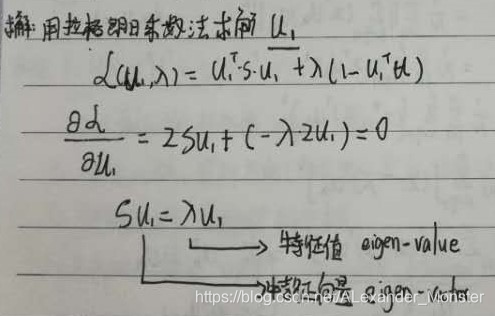 求解: 用拉格朗日乘数法求解 u₁
L(u₁,λ) = u₁ᵀ·S·u₁ + λ(1-u₁ᵀu)
∂L/∂u₁ = 2Su₁ + (-λ·2u₁) = 0
Su₁ = λu₁
→ 特征值 eigen-value
→ 特征向量 eigen-vector
https://blog.csdn.net/ALexander_Monster